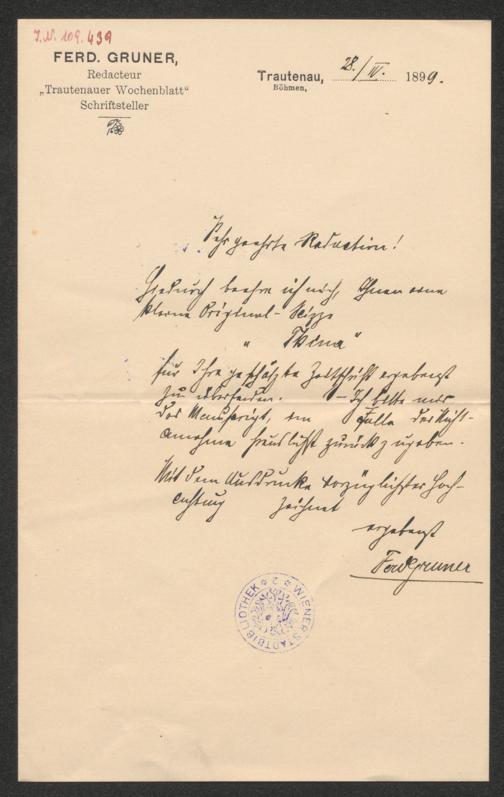 I.N. 109.439
FERD. GRUNER,
Redacteur
„Trautenauer Wochenblatt“
Schriftsteller
Trautenau, 28./IV. 1899.
Böhmen,
Sehr geehrte Redaction!
Hiedurch beehre ich mich, Ihnen eine
kleine Original-Skizze
„
für Ihre geschätzte Zeitschrift ergebenst
zu übersenden. – Ich bitte mir
das Manuscript, im Falle der Nicht-
annahme zurückzugeben.
Mit dem Ausdrucke vorzüglichster Hoch-
achtung zeichnet
ergebenst
FerdGruner
WIENER STADTBIBLIOTHEK